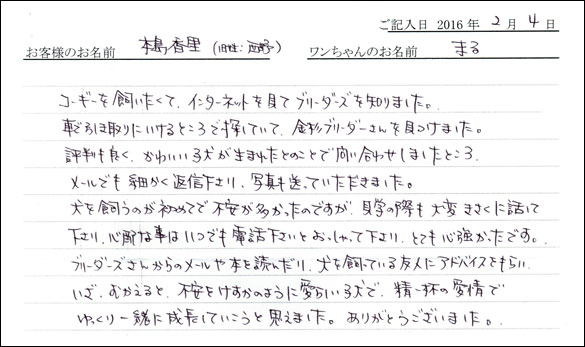 ご記入日 2016 年 2 月 4 日
お客様のお名前 本島香里 (旧姓:西野) ワンちゃんのお名前 まる
コーギーを飼いたくて、インターネットを見てブリーダーズを知りました。
車で引き取りにいけるところで探していて、金杉ブリーダーさんを見つけました。
評判も良く、かわいい子犬が生まれたとのことで問い合わせしましたところ、
メールでも細かく返信下さり、写真も送っていただきました。
犬を飼うのが初めてで不安が多かったのですが、見学の際も大変きさくに話して
下さり、心配な事はいつでも電話下さいとおっしゃって下さり、とても心強かったです。
ブリーダーズさんからのメールや本を読んだり、犬を飼っている友人にアドバイスをもらい、
いざ、むかえると、不安をけすかのように愛らしい子犬で、精一杯の愛情で
ゆっくり一緒に成長していこうと思えました。ありがとうございました。